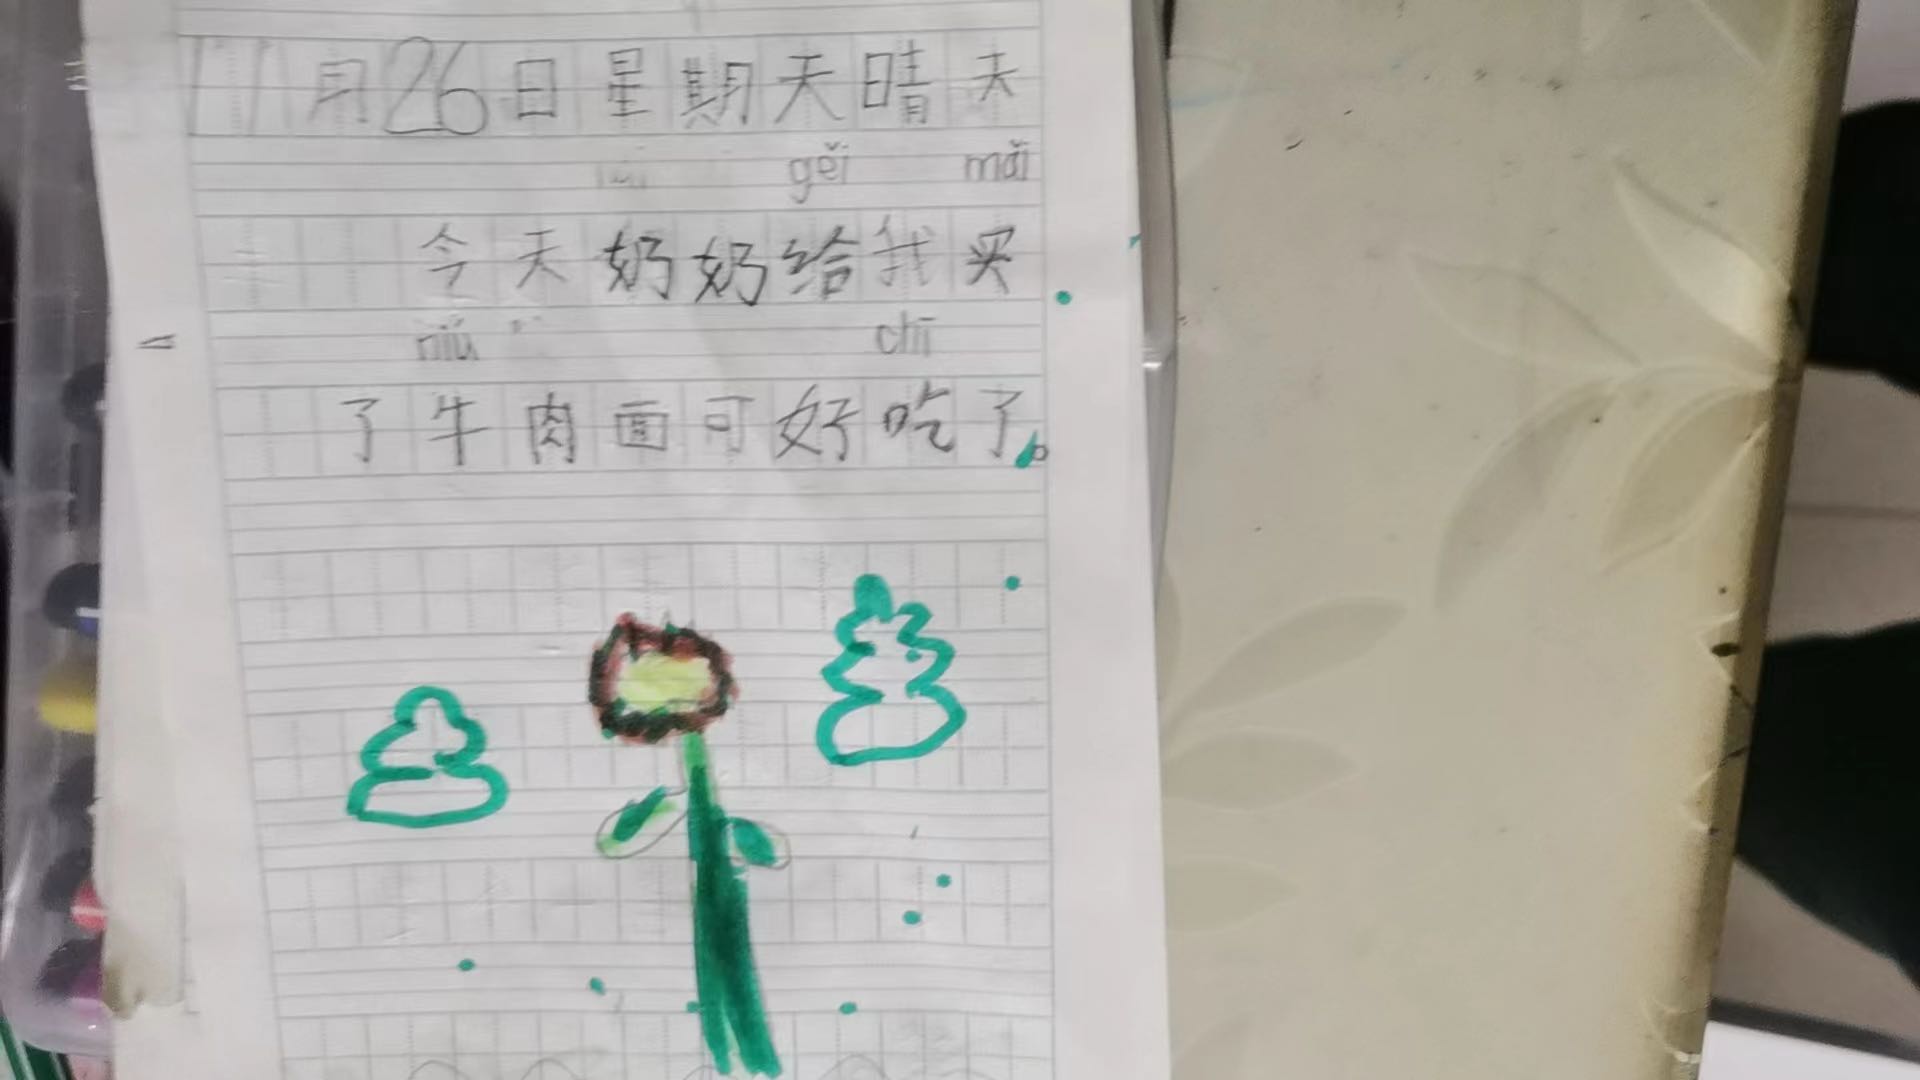 11月26日星期天晴天
gěi mǎi
今天奶奶给我买
niú chī
了牛肉面可好吃了。